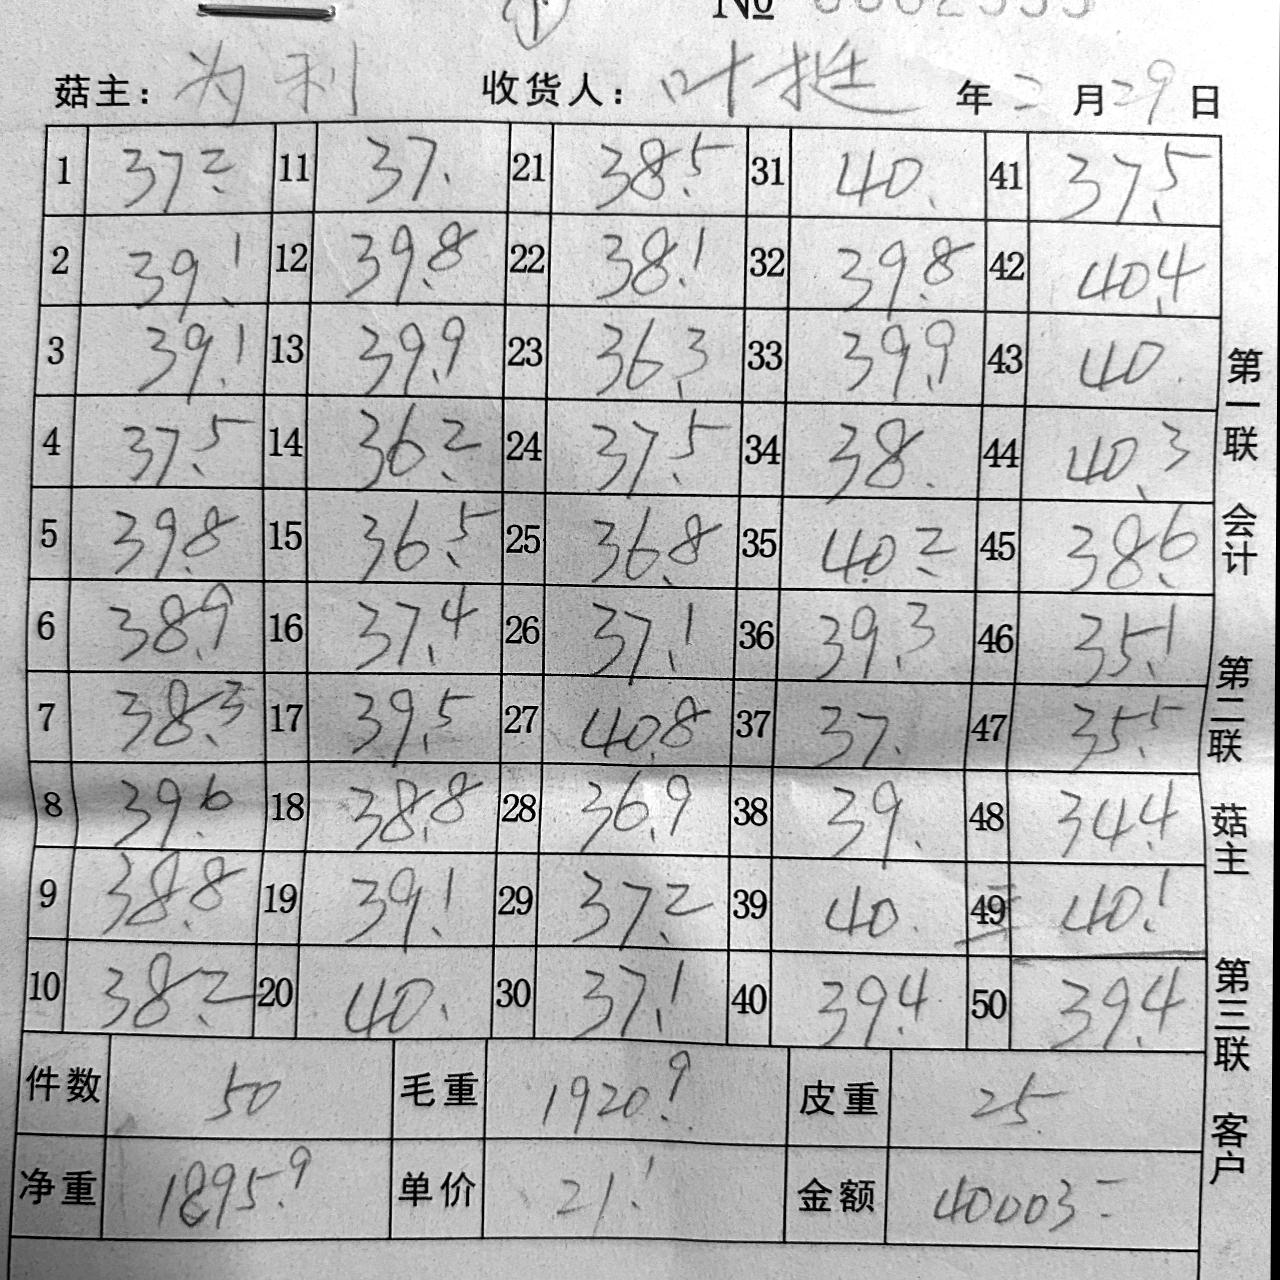 № 0002555
菇主：为利 收货人：叶挺 年二月29日
1 37.2 11 37. 21 38.5 31 40. 41 37.5
2 39.1 12 39.8 22 38.1 32 39.8 42 40.4
3 39.1 13 39.9 23 36.3 33 39.9 43 40.
4 37.5 14 36.2 24 37.5 34 38. 44 40.3
5 39.8 15 36.5 25 36.8 35 40.2 45 38.6
6 38.9 16 37.4 26 37.1 36 39.3 46 35.1
7 38.3 17 39.5 27 40.8 37 37. 47 35.5
8 39.6 18 38.8 28 36.9 38 39. 48 34.4
9 38.8 19 39.1 29 37.2 39 40. 49 40.1
10 38.2 20 40. 30 37.1 40 39.4 50 39.4
件数 50 毛重 1920.9 皮重 25
净重 1895.9 单价 21.1 金额 40003-
第一联 会计 第二联 菇主 第三联 客户